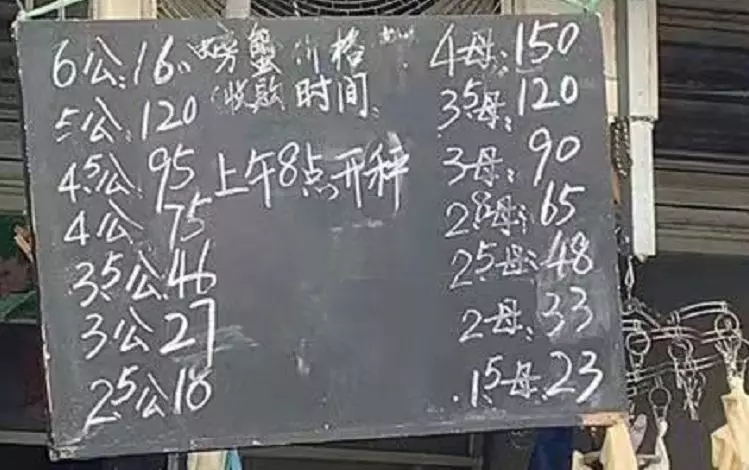 螃蟹价格
收购时间
上午8点开秤
6公:16
5公:120
4.5公.95
4公.75
3.5公.46
3公27
2.5公18
4母:150
3.5母:120
3母:90
2.8母:65
2.5母:48
2母:33
1.5母.23